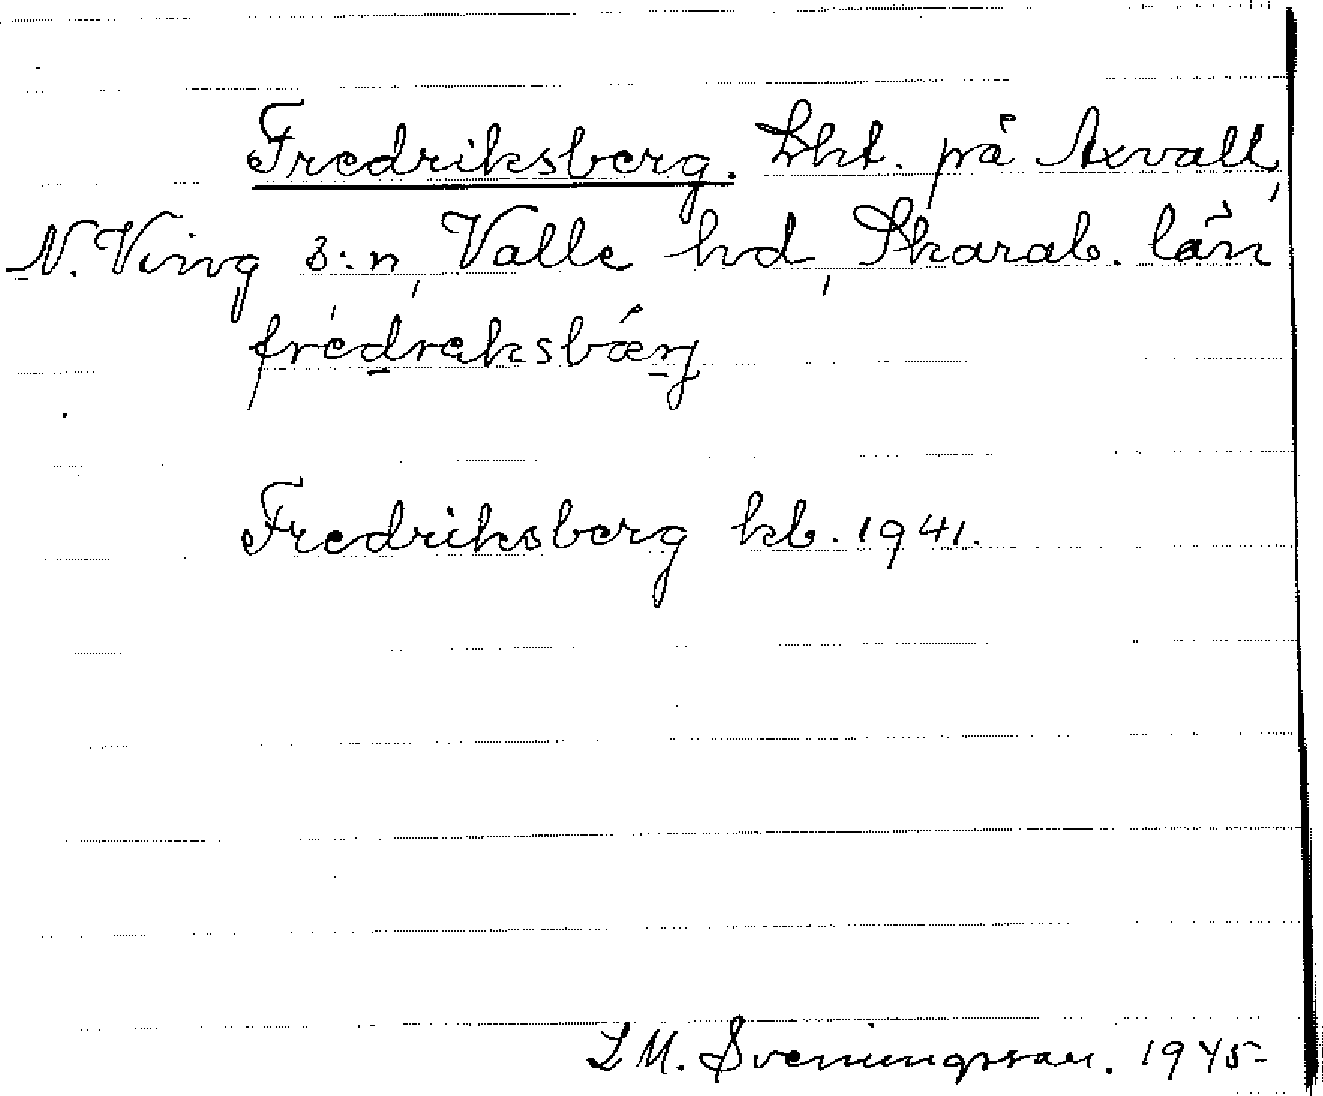 Fredriksberg. Lht. på Axvall,
N. Ving s:n, Valle hd, Skarab. län
frèdreksbǽrj
Fredriksberg kb. 1941.
L M. Svenungsson. 1945